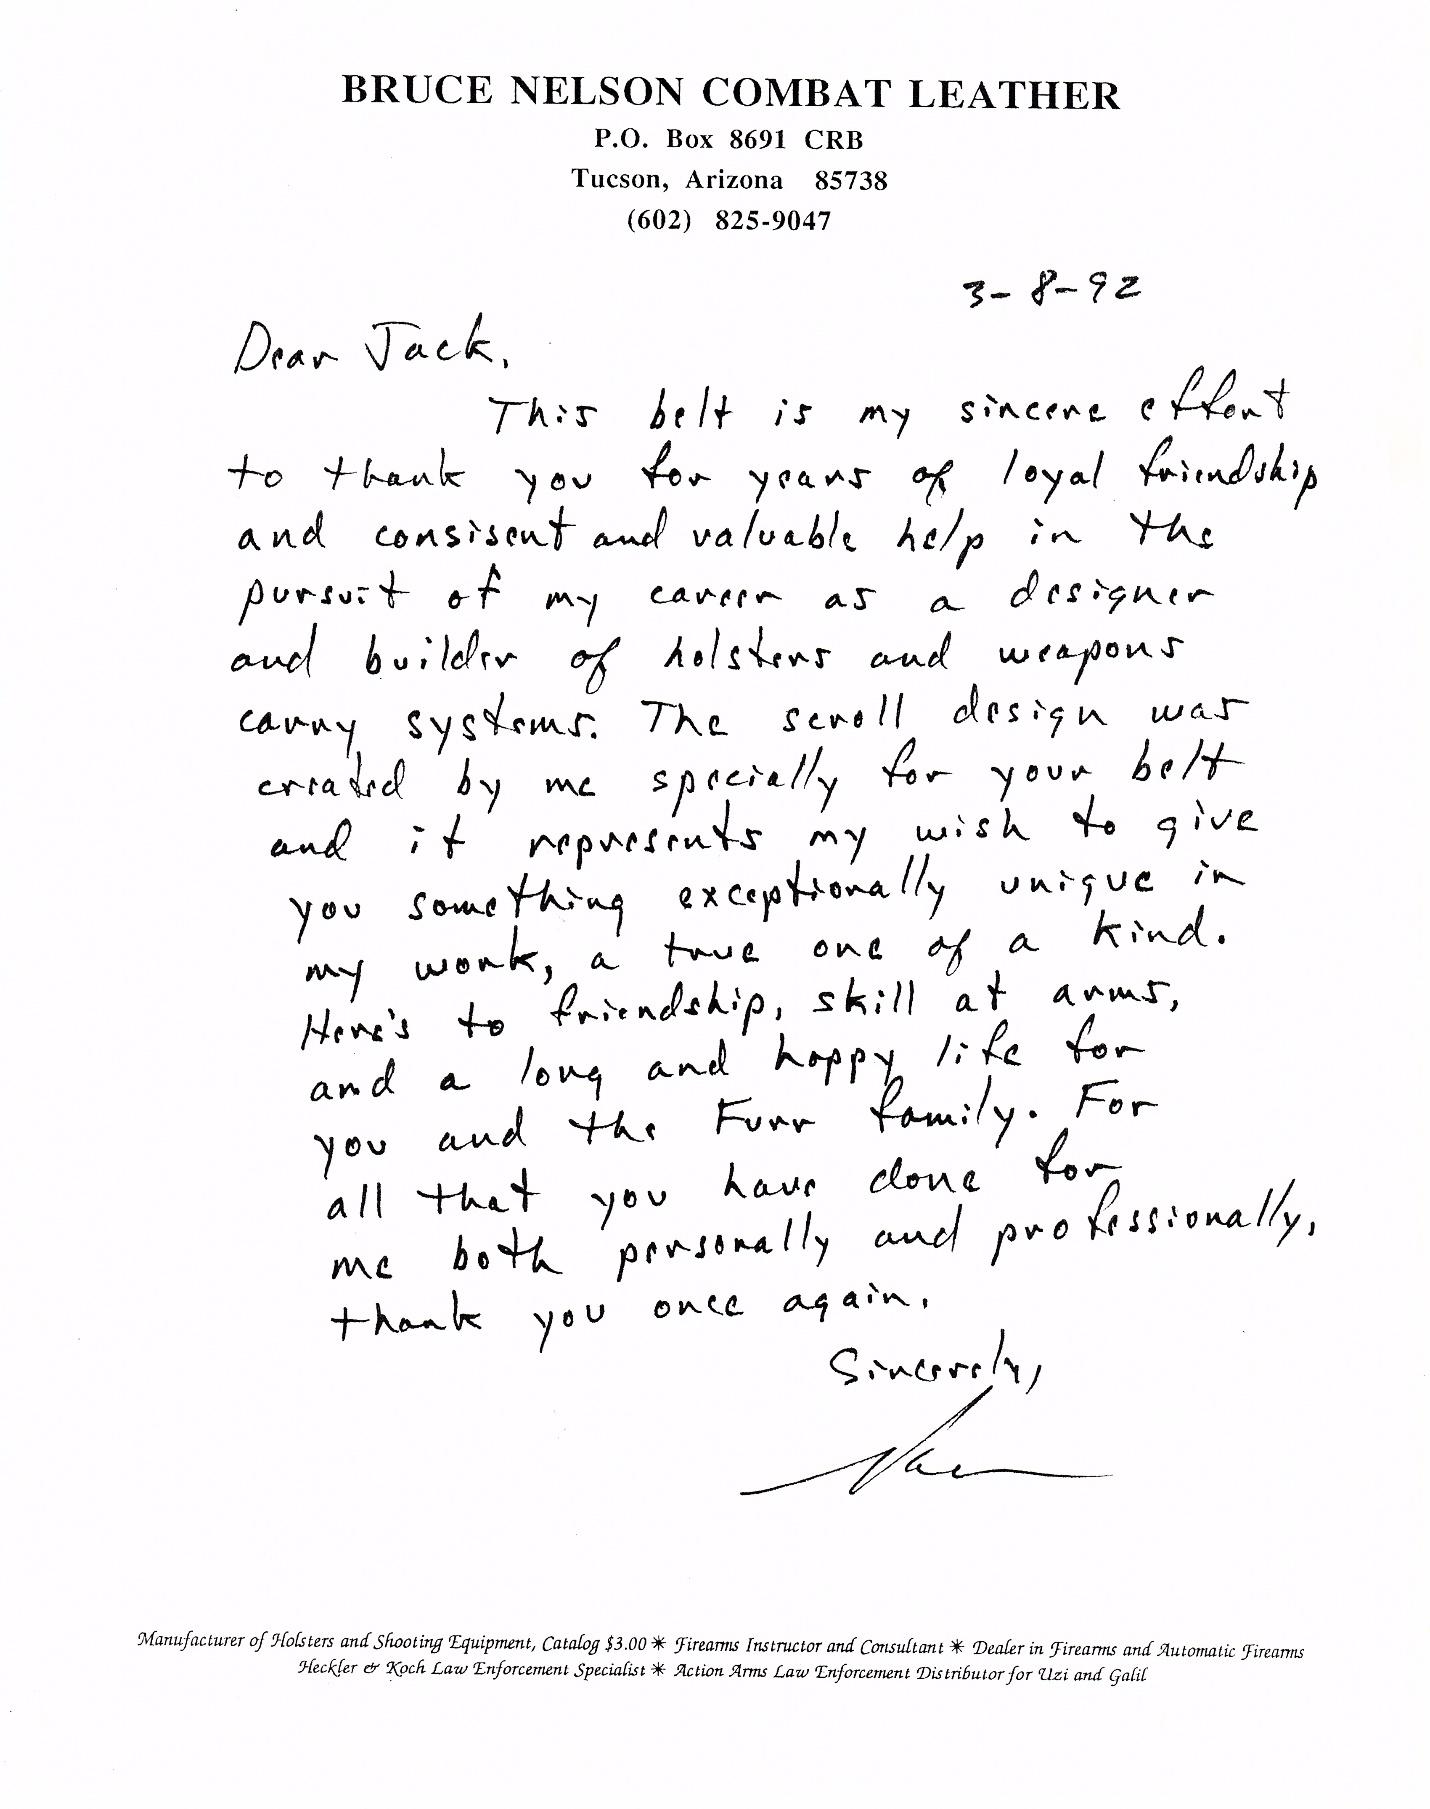 BRUCE NELSON COMBAT LEATHER
P.O. Box 8691 CRB
Tucson, Arizona 85738
(602) 825-9047
3-8-92
Dear Jack,
This belt is my sincere effort
to thank you for years of loyal friendship
and consisent and valuable help in the
pursuit of my career as a designer
and builder of holsters and weapons
carry systems. The scroll design was
created by me specially for your belt
and it represents my wish to give
you something exceptionally unique in
my work, a true one of a kind.
Here's to friendship, skill at arms,
and a long and happy life for
you and the Furr family. For
all that you have done for
me both personally and professionally,
thank you once again.
Sincerely,
Manufacturer of Holsters and Shooting Equipment, Catalog $3.00 * Firearms Instructor and Consultant * Dealer in Firearms and Automatic Firearms
Heckler & Koch Law Enforcement Specialist * Action Arms Law Enforcement Distributor for Uzi and Galil